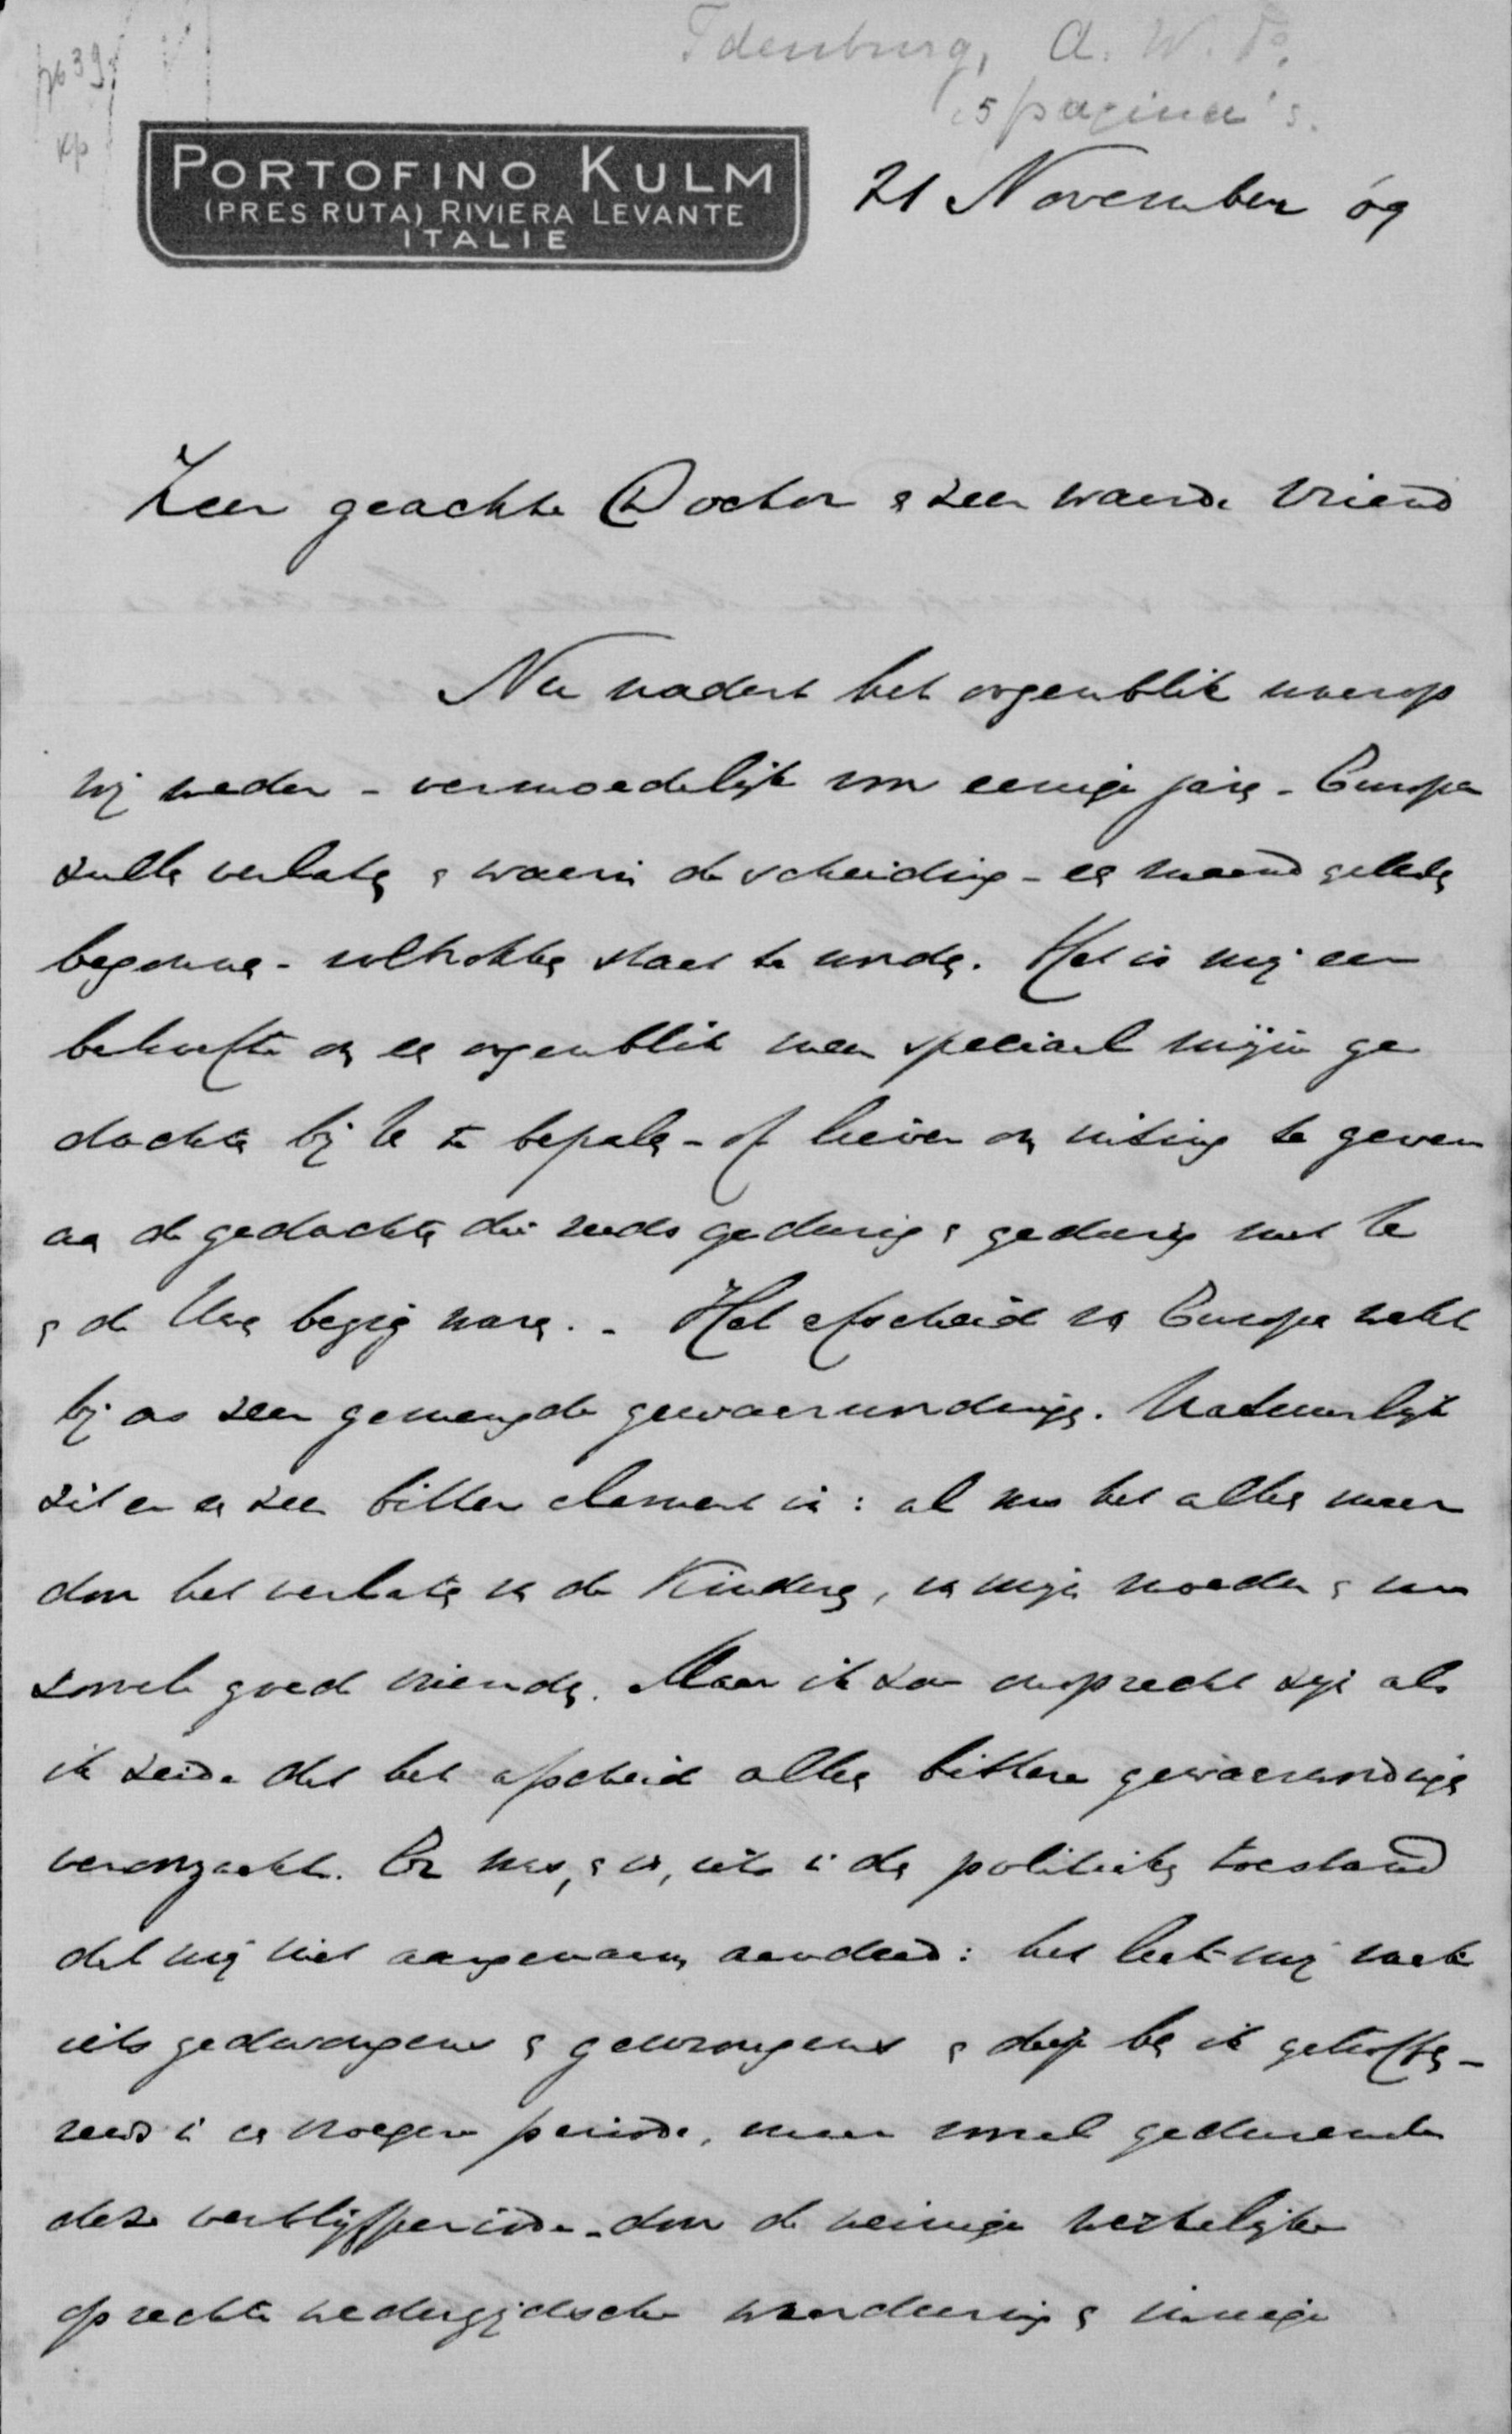 Idenburg, A. W. F.
5 pagina's.
PORTOFINO KULM
(PRES RUTA) RIVIERA LEVANTE
ITALIE
21 November 09
Zeer geachte Doctor & zeer waarde Vriend
Nu nadert het oogenblik waarop
wij weder - vermoedelijk voor eenige jaren - Europa
zullen verlaten & waarin de scheiding - een maand geleden
begonnen - voltrokken staat te worden. Het is mij een
behoefte om een oogenblik meer speciaal mijn ge
dachten bij U te bepalen - of liever om uiting te geven
aan de gedachten die reeds gedurig & gedurig met U
& de Uwen bezig waren. - Het afscheid van Europa wekt
bij ons zeer gemengde gewaarwordingen. Natuurlijk
zit er een zeer bitter element in: al was het alleen maar
door het verlaten van de Kinderen, van mijn moeder & van
zoovele goede vrienden. Maar ik zou onoprecht zijn als
ik zeide dat het afscheid alleen bittere gewaarwordingen
veroorzaakt. Er was, & is, iets in den politieken toestand
dat mij niet aangenaam aandeed: het leek mij vaak
iets gedwongens & gewrongens & diep ben ik getroffen -
reeds in een vroegere periode, maar vooral gedurende
deze verblijfperiode - door de weinige werkelijke
oprechte wederzijdsche waardeering & innige